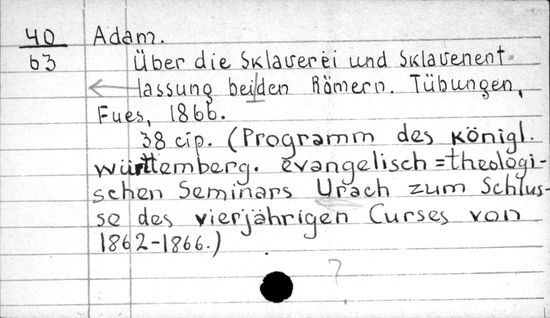 40 Adam.
63 Über die Sklaverei und Sklavenent-
lassung bei den Römern. Tübungen,
Fues, 1866.
38 cip. (Programm des Königl.
württemberg. evangelisch=theologi-
schen Seminars Urach zum Schlus-
se des vierjährigen Curses von
1862-1866.)
?